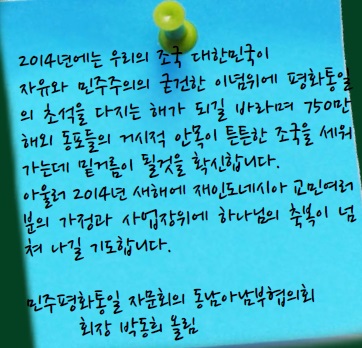 2014년에는 우리의 조국 대한민국이
자유와 민주주의의 굳건한 이념위에 평화통일
의 초석을 다지는 해가 되길 바라며 750만
해외 동포들의 거시적 안목이 튼튼한 조국을 세워
가는데 밑거름이 될것을 확신합니다.
아울러 2014년 새해에 재인도네시아 교민여러
분의 가정과 사업장위에 하나님의 축복이 넘
쳐 나길 기도합니다.
민주평화통일 자문회의 동남아남부협의회
회장 박동희 올림